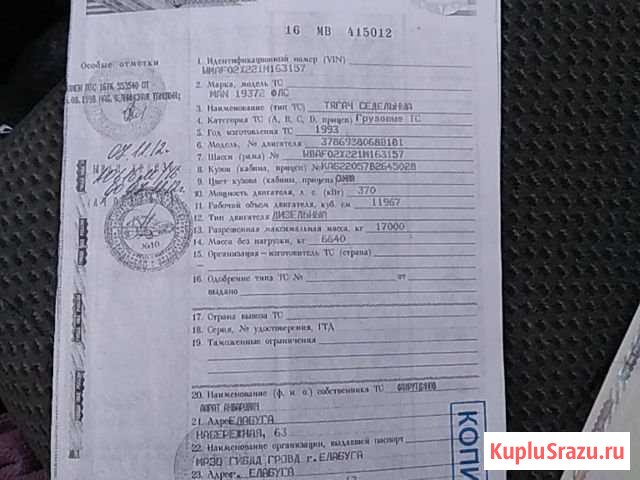 16 МВ 415012
Особые отметки
1. Идентификационный номер (VIN)
WMAF02X221M163157
2. Марка, модель ТС
МАN 19372 ФЛС
3. Наименование (тип ТС) ТЯГАЧ СЕДЕЛЬНЫЙ
4. Категория ТС (A, B, C, D, прицеп) Грузовые ТС
5. Год изготовления ТС 1993
6. Модель, № двигателя
7. Шасси (рама) № WMAF02X221M163157
8. Кузов (кабина, прицеп) №
9. Цвет кузова (кабина, прицепа)
10. Мощность двигателя, л. с. (кВт) 370
11. Рабочий объем двигателя, куб. см 11967
12. Тип двигателя ДИЗЕЛЬНЫЙ
13. Разрешенная максимальная масса, кг 17000
14. Масса без нагрузки, кг 6640
15. Организация—изготовитель ТС (страна)
16. Одобрение типа ТС № от
выдано
17. Страна вывоза ТС
18. Серия, № удостоверения, ГТД
19. Таможенные ограничения
20. Наименование (ф. и. о.) собственника ТС
21. Адрес ЕЛАБУГА
НАБЕРЕЖНАЯ, 63
22. Наименование организации, выдавшей паспорт
МРЭО ГИБДД ГРОВД г.ЕЛАБУГА
23. Адрес г. ЕЛАБУГА
№10
КОПИ
KupluSrazu.ru